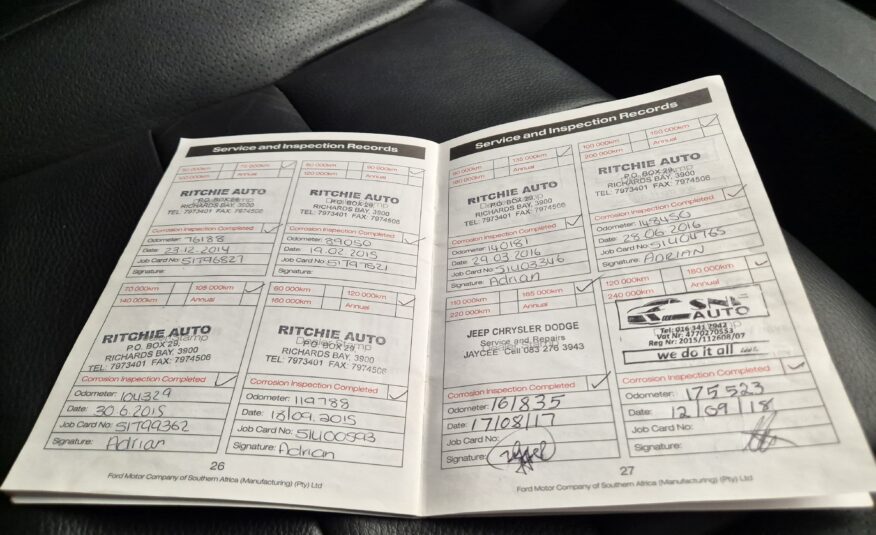 Service and Inspection Records
75 000km
60 000km 90 000km
120 000km Annual
RITCHIE AUTO
P.O. BOX 29,
RICHARDS BAY, 3900
TEL: 7973401 FAX: 7974506
Corrosion Inspection Completed
Odometer: 76188
Date: 23.12.2014
Job Card No: 51796827
Signature:
RITCHIE AUTO
P.O. BOX 29,
RICHARDS BAY, 3900
TEL: 7973401 FAX: 7974506
Corrosion Inspection Completed
Odometer: 89050
Date: 19.02.2015
Job Card No: 51797821
Signature:
70 000km 105 000km
140 000km Annual
RITCHIE AUTO
P.O. BOX 29,
RICHARDS BAY, 3900
TEL: 7973401 FAX: 7974506
Corrosion Inspection Completed
Odometer: 104329
Date: 30.6.2015
Job Card No: 51799362
Signature: Adrian
80 000km 120 000km
160 000km Annual
RITCHIE AUTO
Dealer Stamp
P.O. BOX 29,
RICHARDS BAY, 3900
TEL: 7973401 FAX: 7974506
Corrosion Inspection Completed
Odometer: 119788
Date: 18/09.2015
Job Card No: 51400593
Signature: Adrian
26
Ford Motor Company of Southern Africa (Manufacturing) (Pty) Ltd
Service and Inspection Records
90 000km 135 000km
180 000km Annual
RITCHIE AUTO
P.O. BOX 29,
RICHARDS BAY, 3900
TEL: 7973401 FAX: 7974506
Corrosion Inspection Completed
Odometer: 140181
Date: 29.03.2016
Job Card No: 51403346
Signature: Adrian
100 000km 150 000km
200 000km Annual
RITCHIE AUTO
P.O. BOX 29,
RICHARDS BAY, 3900
TEL: 7973401 FAX: 7974506
Corrosion Inspection Completed
Odometer: 148450
Date: 28.06.2016
Job Card No: 51404765
Signature: ADRIAN
110 000km 165 000km
220 000km Annual
JEEP CHRYSLER DODGE
Service and Repairs
JAYCEE Cell 083 276 3943
Corrosion Inspection Completed
Odometer: 161835
Date: 17/08/17
Job Card No:
Signature:
120 000km 180 000km
240 000km Annual
SNF
AUTO
Tel: 016 341 2942
Vat Nr: 4770270553
Reg Nr: 2015/112608/07
we do it all
Corrosion Inspection Completed
Odometer: 175523
Date: 12/09/18
Job Card No:
Signature:
27
Ford Motor Company of Southern Africa (Manufacturing) (Pty) Ltd